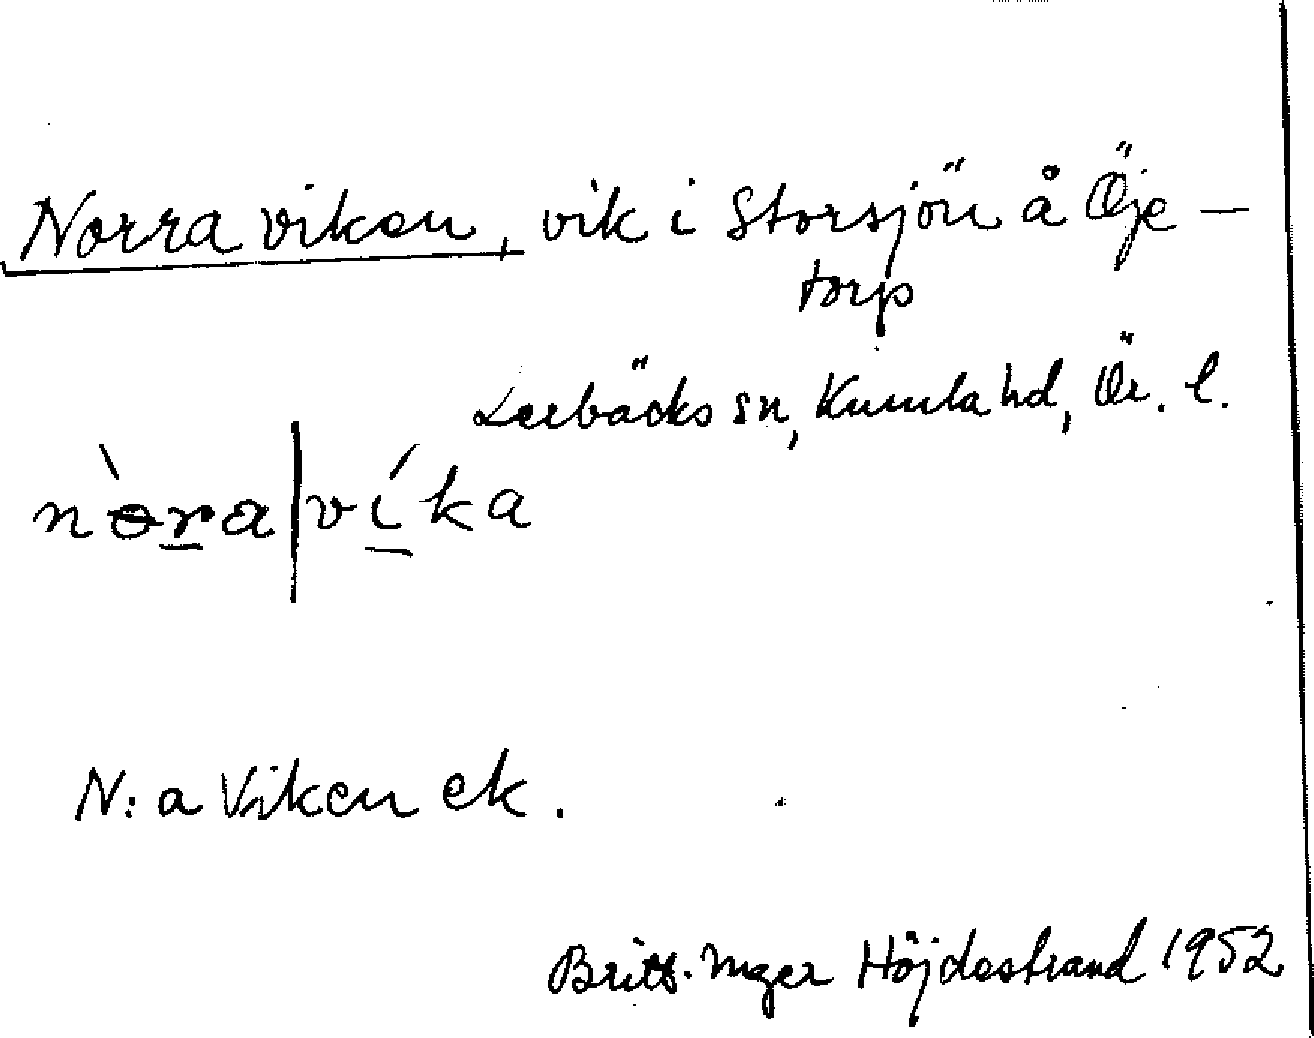 Norra viken, vik i Storsjön å Öje-
torp
Lerbäcks sn, Kumla hd, Ör. l.
nòra|víka
N:a Viken ek.
Britt-Inger Höjdestrand 1952